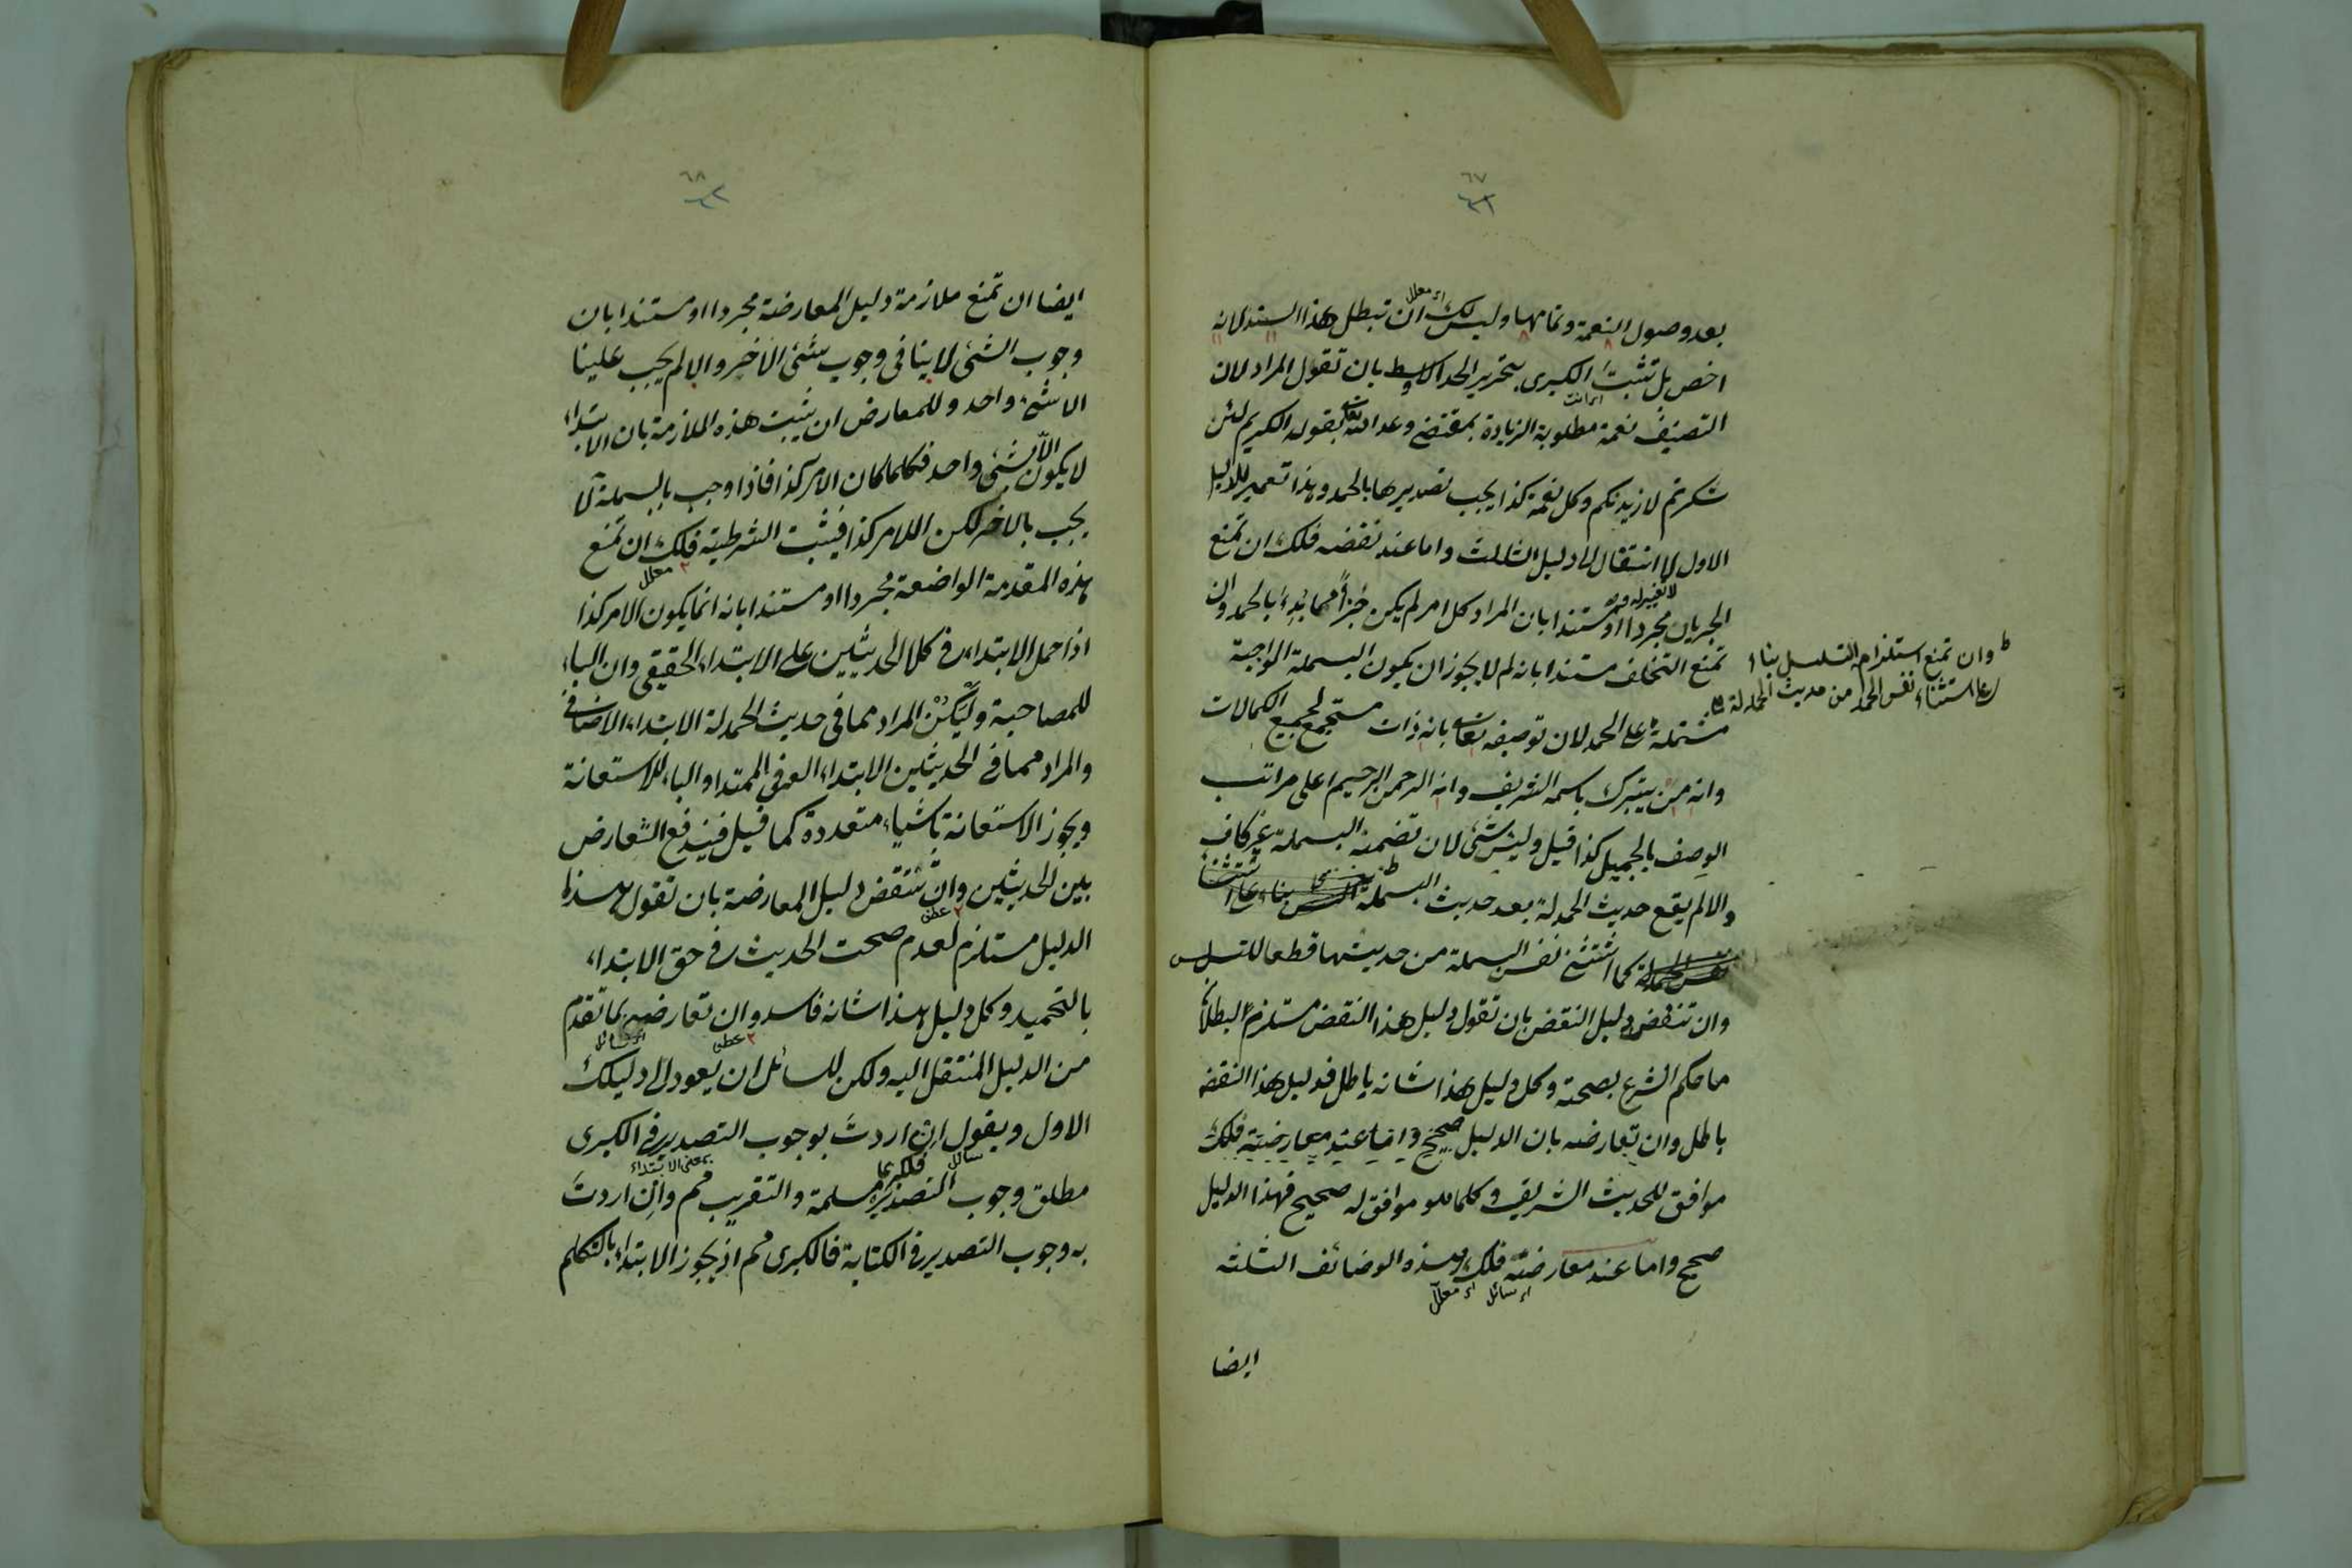 ٦٧
بعد وصول النعمة وتمامها وليس لك ان تبطل هذا السند لانه
اى معلل
اخص بل تثبت الكبرى بتحرير الحد الاوسط بان تقول المراد لان
اى انت
التصنيف نعمة مطلوبة الزيادة بمقتضى وعد الله تعالى بقوله الكريم لئن
شكرتم لازيدنكم وكل نعمة كذا يجب تصديرها بالحمد وهذا تعمير للدليل
الاول لا انتقال الى دليل الثالث واما عند نقضه فلك ان تمنع
الجريان مجردا او مستندا بان المراد كل امر لم يكن جزأ مما بدئ بالحمد وان
تمنع التخلف مستندا بانه لم لا يجوز ان يكون البسملة الواجبة
مشتملة على الحمد لان توصيفه تعالى بانه ذات مستجمع لجميع الكمالات
وانه من يتبرك باسمه الشريف وانه الرحمن الرحيم اعلى مراتب
الوصف بالجميل كذا قيل وليس شئ لان تضمنه البسملة غير كاف
والا لم يقع حديث الحمدلة بعد حديث البسملة
كما استثنى نفس البسملة من حديثها قطعا للتسلسل
وان تنقض دليل النقض بان تقول دليل هذا النقض مستلزم لبطلان
ما حكم الشرع بصحته وكل دليل هذا شانه باطل فدليل هذا النقض
باطل وان تعارضه بان الدليل صحيح واما عند معارضته فلك
موافق للحديث الشريف وكلما هو موافق له صحيح فهذا الدليل
صحيح واما عند معارضته فلك هذه الوضائف الثلثة
اى سائل اى معلل
ايضا
وان تمنع استلزام التسلسل بناء
على استثناء نفس الحمد من حديث الحمدلة
٦٨
ايضا ان تمنع ملازمة دليل المعارضة مجردا او مستندا بان
وجوب الشئ لا ينافى وجوب شئ الاخر والا لم يجب علينا
الا شئ واحد وللمعارض ان يثبت هذه الملازمة بان الابتداء
لا يكون الا بشئ واحد فكلما كان الامر كذا فاذا وجب بالبسملة لا
يجب بالاخر لكن الامر كذا فيثبت الشرطية فلك ان تمنع
معلل
هذه المقدمة الواضعة مجردا او مستندا بانه انما يكون الامر كذا
اذا حمل الابتداء فى كلا الحديثين على الابتداء الحقيقى وان الباء
للمصاحبة وليكن المراد مما فى حديث الحمدلة الابتداء الاضافى
والمراد مما فى الحديثين الابتداء العرفى الممتد او الباء للاستعانة
ويجوز الاستعانة باشياء متعددة كما قيل فيندفع التعارض
بين الحديثين وان تنقض دليل المعارضة بان تقول هذا
عطف
الدليل مستلزم لعدم صحت الحديث فى حق الابتداء
بالتحميد وكل دليل هذا شانه فاسد وان تعارضه بما تقدم
عطف
من الدليل المنتقل اليه ولكن للسائل ان يعود الى دليلك
الاول ويقول ان اردت بوجوب التصدير فى الكبرى
سائل بمعنى الابتداء
مطلق وجوب التصدير فالكبرى مسلمة والتقريب مم وان اردت
به وجوب التصدير فى الكتابة فالكبرى مم اذ يجوز الابتداء بالتكلم